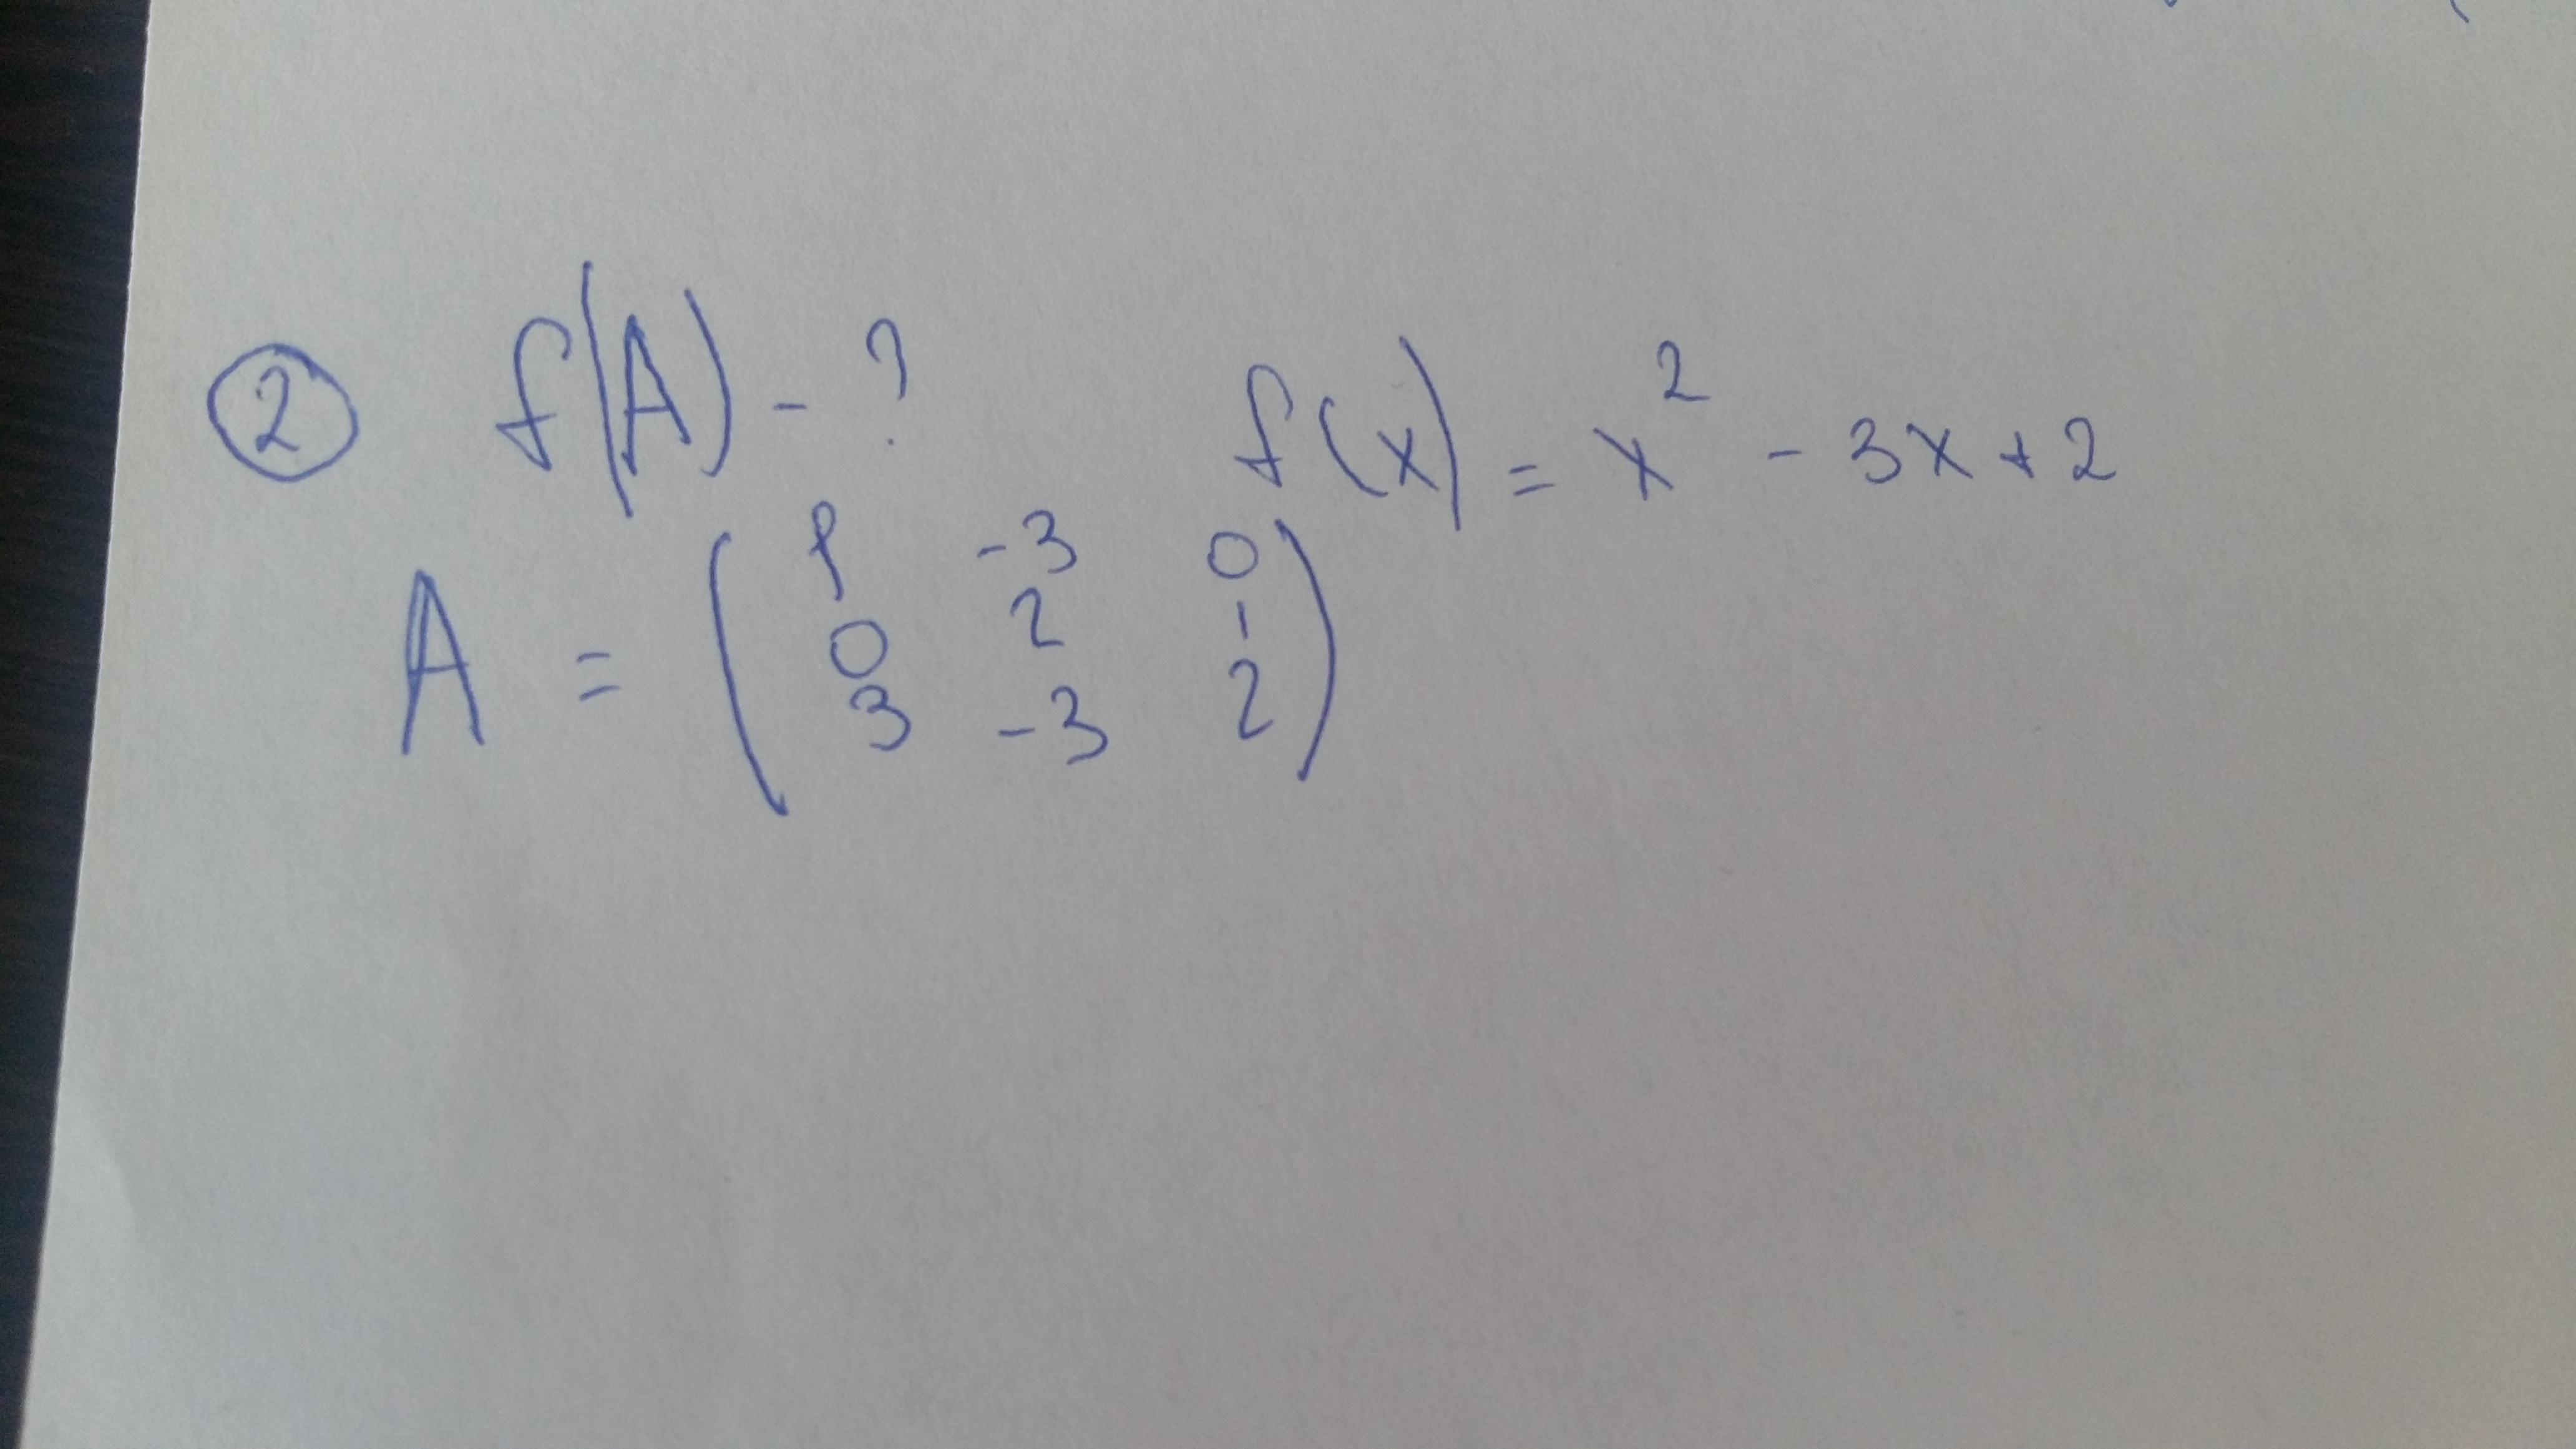 ② f(A) - ? f(x) = x² - 3x + 2
A = ( 1 -3 0
0 2 1
3 -3 2 )